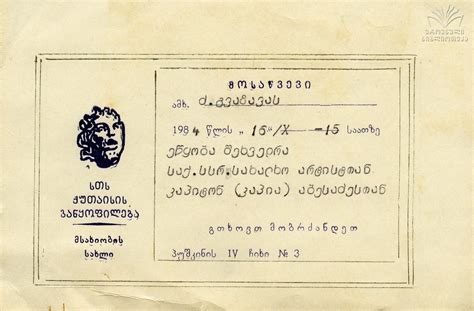 ეროვნული
ბიბლიოთეკა
მოსაწვევი
ამხ. ძ. გვაზავას
1984 წლის „ 15 " /X – 15 საათზე
ეწყობა შეხვედრა
საქ.სსრ.სახალხო არტისტთან
კაპიტონ (კაპია) აბესაძესთან
გთხოვთ მობრძანდეთ
პუშკინის IV ჩიხი № 3
სთს
ქუთაისის
განყოფილება
მსახიობის
სახლი